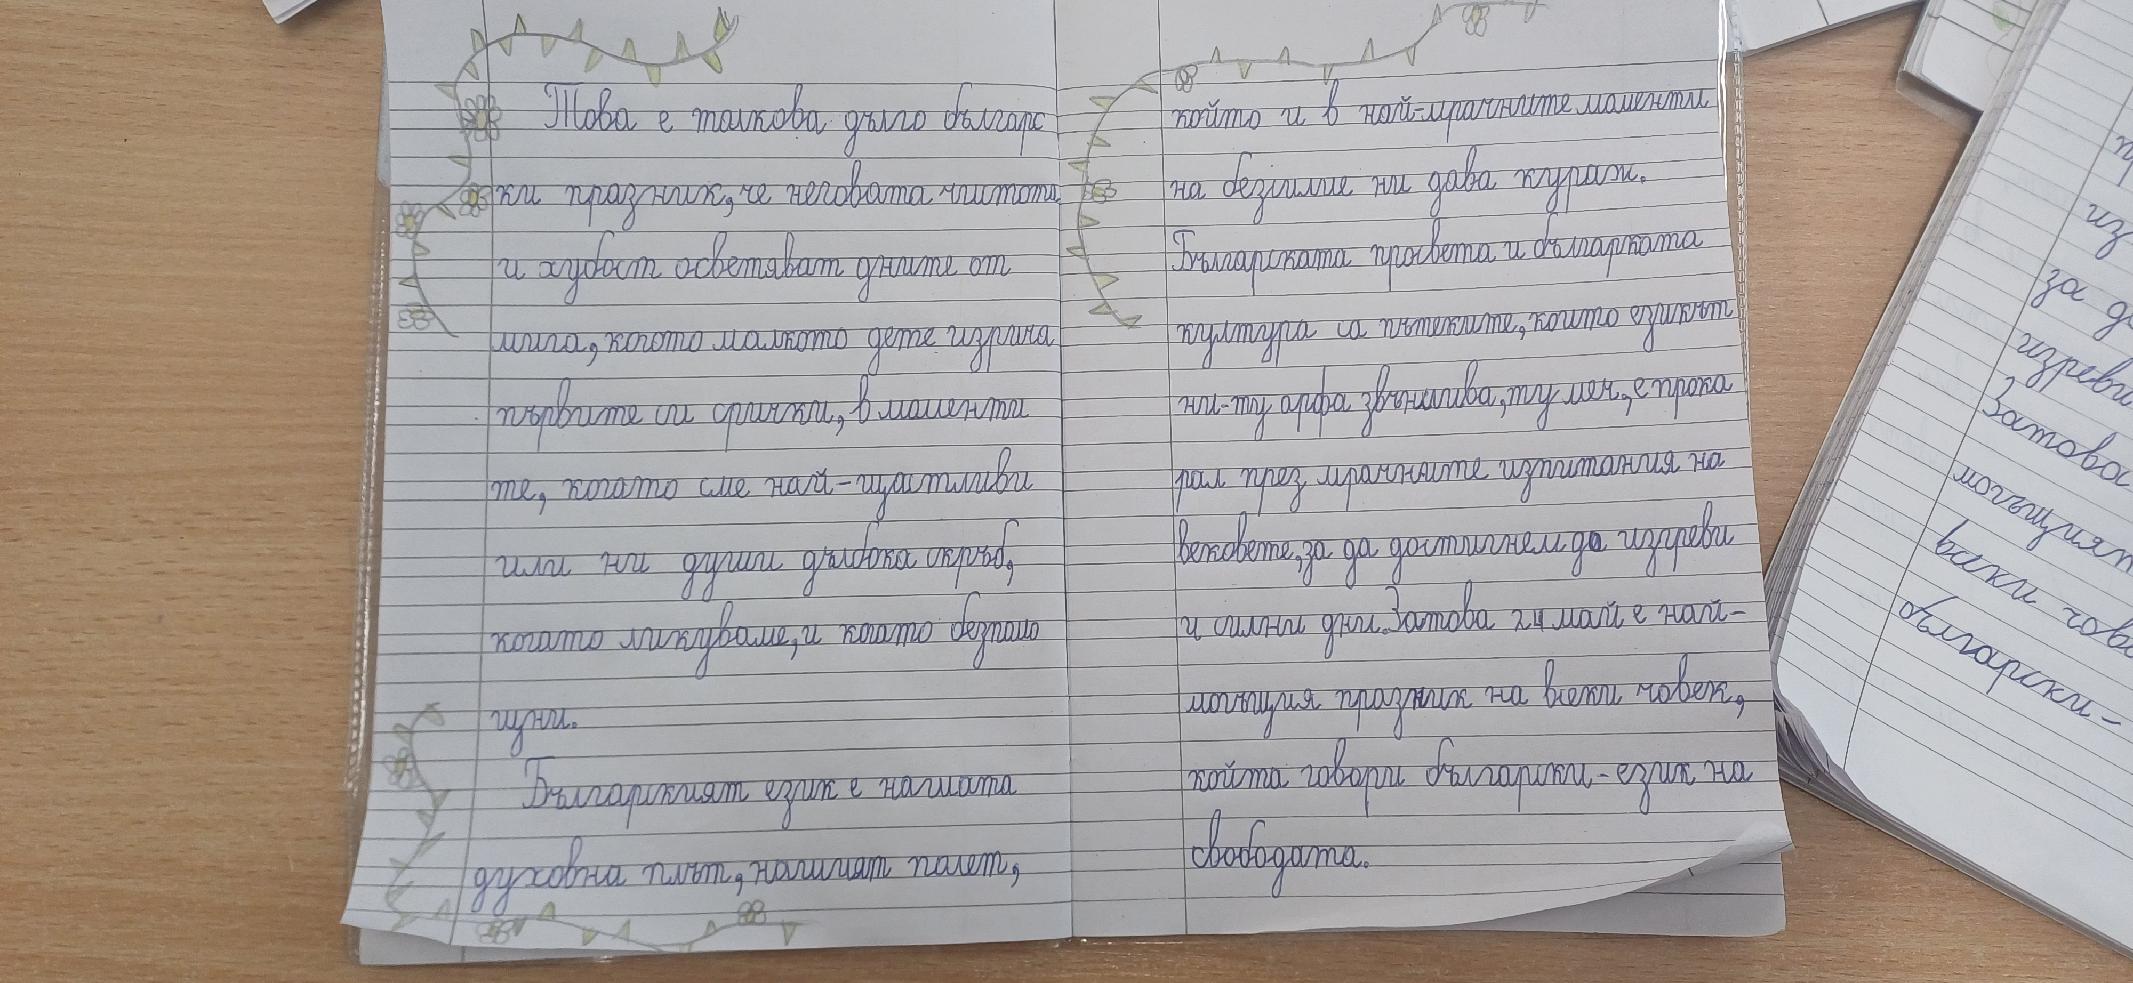 Това е толкова дълго българс
ки празник, че неговата чистота
и хубост осветяват дните от
мига, когото малкото дете изрича
първите си срички, в моменти
те, когато сме най-щастливи
или ни души дълбока скръб,
когато ликуваме, и когато безпаио
щни.
Българският език е нашата
духовна плът, нашият полет,
който и в най-мрачните моменти
на безсилие ни дава кураж.
Българската просвета и българката
култура са пътеките, които езикът
ни-ту арфа звънлива, ту меч, е прока
рал през мрачните изпитания на
вековете, за да достигнем до изгреви
и силни дни. Затова 24 май е най-
могъщия празник на всеки човек,
който говори български-език на
свободата.
из
за
изреви
Затова
могъщия
всеки чов
български-